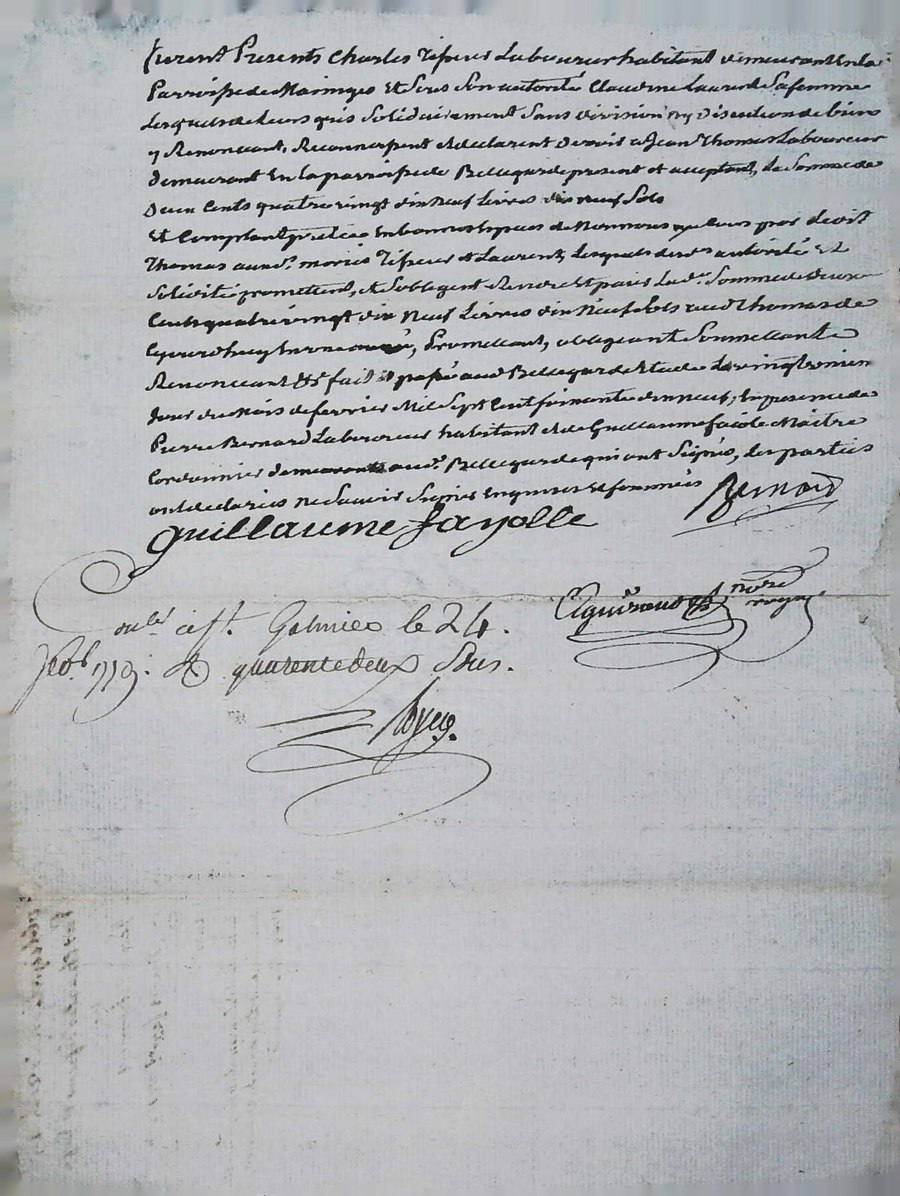 furent Presents Charles Tissieur Laboureur habitant demeurant En la
Parroisse de Maringes Et Sous Son autorité Claudine Laurent Sa femme
Lesquels de Leurs gré Solidairement Sans division ny Discution de biens
y Renoncant, Reconnoissent et declarent devoir a Jean Thomas Laboureur
demeurant En la parroisse de Bellegarde present et acceptant, La Somme de
Deux Cents quatre vingt dix Neuf Livres dix neuf Sols
Et En bonnes Especes de Monnoye par Ledit
Thomas aud. Tissieur et Laurent, Lesquels de lad. autorité Et
Solidité promettent, et Sobligent Rendre Et paier Lad. Somme de Deux
Cents quatre vingt dix Neuf Livres dix Neuf Sols aud Thomas de
, Promettant, obligeant Soumettant
Renoncant &c fait et passé aud Bellegarde Etude Le vingt
Jour du Mois de fevrier Mil Sept Cent neuf, En presence de
Pierre Bernard Laboureur habitant et de Guillaume faiole Maitre
Cordonnier demeurants aud. Bellegarde qui ont Signés, Les parties
ont declarées Ne Scavoir Signer Enquises Et Sommées Bernard
Guillaume fayolle
not.re royal.
a St. Galmier le 24.
feb. R quarente deux Sous.